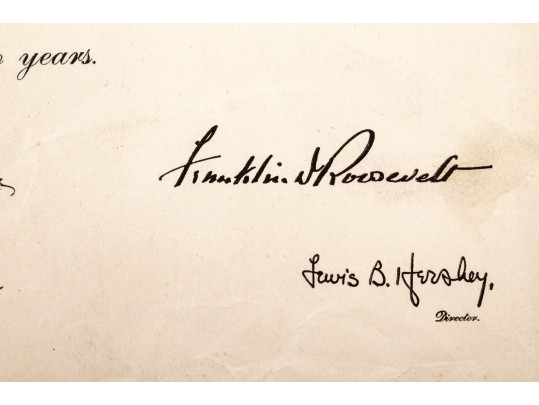 years.
Franklin D Roosevelt
Lewis B. Hershey.
Director.